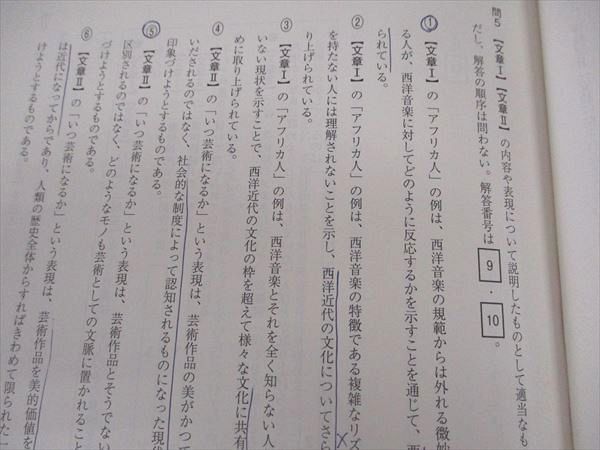 問5 【文章Ⅰ】【文章Ⅱ】の内容や表現について説明したものとして適当なも
だし、解答の順序は問わない。解答番号は 9 ・ 10 。
① 【文章Ⅰ】の「アフリカ人」の例は、西洋音楽の規範からは外れる微妙
る人が、西洋音楽に対してどのように反応するかを示すことを通じて、西
られている。
② 【文章Ⅰ】の「アフリカ人」の例は、西洋音楽の特徴である複雑なリズ
を持たない人には理解されないことを示し、西洋近代の文化についてさら
り上げられている。
③ 【文章Ⅰ】の「アフリカ人」の例は、西洋音楽とそれを全く知らない人
いない現状を示すことで、西洋近代の文化の枠を超えて様々な文化に共有
めに取り上げられている。
④ 【文章Ⅱ】の「いつ芸術になるか」という表現は、芸術作品の美がかつて
いだされるのではなく、社会的な制度によって認知されるものになった現代
印象づけようとするものである。
⑤ 【文章Ⅱ】の「いつ芸術になるか」という表現は、芸術作品とそうでない
区別されるのではなく、どのようなモノも芸術としての文脈に置かれること
づけようとするものである。
⑥ 【文章Ⅱ】の「いつ芸術になるか」という表現は、芸術作品を美的価値を
は近代になってからであり、人類の歴史全体からすればきわめて限られた一
けようとするものである。